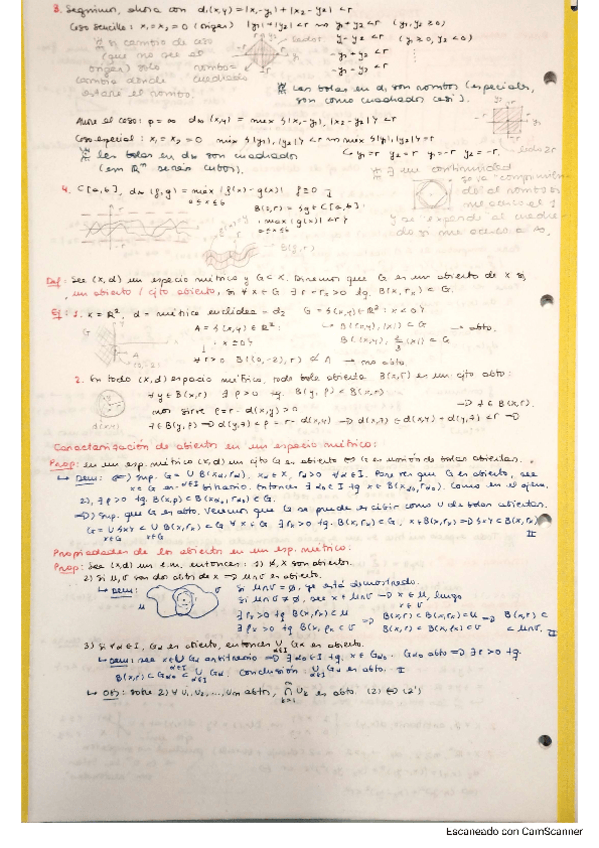 3. Seguimos, ahora con d₁(x,y) = |x₁-y₁| + |x₂-y₂| < r
Caso sencillo: x₁=x₂=0 (origen) |y₁|+|y₂| < r y₁+y₂ < r (y₁,y₂ ≥ 0)
y₁-y₂ < r (y₁ ≥ 0, y₂ < 0)
-y₁+y₂ < r
-y₁-y₂ < r
Si cambio de caso
(que no sea el
origen) solo
cambia donde
estaré el rombo.
Las bolas en d₁ son rombos (especiales,
son como cuadrados casi).
Ahora el caso: p=∞ d∞(x,y) = máx {|x₁-y₁|, |x₂-y₂|} < r
Caso especial: x₁=x₂=0 máx {|y₁|,|y₂|} < r máx {|y₁|,|y₂|} = r
y₁=r y₂=r y₁=-r y₂=-r, lado 2r
Las bolas en d∞ son cuadrados
(em ℝⁿ serán cubos).
∃ una continuidad
del rombo
me acerco al 1
y se expande al cuadra
do si me acerco a ∞.
4. C[a,b], d∞(f,g) = máx |f(x)-g(x)| f≡0
a≤x≤b
B(f,r) = {g ∈ C[a,b]:
máx |g(x)| < r}
a≤x≤b
B(f,r)
Def: Sea (X,d) un espacio métrico y G ⊂ X. Diremos que G es un abierto de X o,
un abierto / cjto abierto, si ∀x∈G ∃ r=rₓ>0 tq. B(x,rₓ) ⊂ G.
Ej: 1. X=ℝ², d = métrica euclídea = d₂ G = {(x,y)∈ℝ²: x<0}
A = {(x,y) ∈ ℝ²: x≤0} B((x,y),|x|) ⊂ G → abto.
B((x,y), ½|x|) ⊂ G
∀r>0 B((0,-2),r) ⊄ A → no abto.
2. En todo (X,d) espacio métrico, toda bola abierta B(x,r) es un cjto abto:
∀y∈B(x,r) ∃ρ>0 tq. B(y,ρ) ⊂ B(x,r)
nos sirve ρ=r-d(x,y)>0 ⇒ z∈B(x,r).
z∈B(y,ρ) ⇒ d(y,z)<ρ=r-d(x,y) ⇒ d(x,z) ≤ d(x,y)+d(y,z) < r ⇒
Caracterización de abiertos en un espacio métrico:
Prop: en un esp. métrico (X,d) un cjto G es abierto ⇔ G es unión de bolas abiertas.
Dem: ⇐) Sup. G = ∪ B(xα,rα), xα∈X, rα>0 ∀α∈I. Para ver que G es abierto, sea
x∈G arbitrario. Entonces ∃α₀∈I tq x∈B(xα₀,rα₀). Como en el ejem.
2), ∃ρ>0 tq. B(x,ρ) ⊂ B(xα₀,rα₀) ⊂ G.
⇒) Sup. que G es abto. Veremos que G se puede escribir como ∪ de bolas abiertas.
G = ∪{x} ⊂ ∪ B(x,rₓ) ⊂ G ∀x∈G ∃rₓ>0 tq. B(x,rₓ) ⊂ G, x∈B(x,rₓ) ⇒ {x} ⊂ B(x,rₓ)
Propiedades de los abiertos en un esp. métrico:
Prop: Sea (X,d) un e.m. entonces: 1) ∅, X son abiertos.
2) Si U,V son dos abtos de X ⇒ U∩V es abierto.
Dem: Si U∩V=∅, ya está demostrado.
Si U∩V≠∅, sea x∈U∩V ⇒ x∈U, luego
x∈V
∃rₓ>0 tq B(x,rₓ) ⊂ U
∃ρₓ>0 tq B(x,ρₓ) ⊂ V
3) Si ∀α∈I, Gα es abierto, entonces ∪ Gα es abierto.
Dem: sea x∈∪Gα arbitrario ⇒ ∃α₀∈I tq. x∈Gα₀. Gα₀ abto ⇒ ∃r>0 tq.
B(x,r) ⊂ Gα₀ ⊂ ∪ Gα. Conclusión: ∪ Gα es abto.
Obs: sobre 2) ∀U₁,U₂,...,Uₙ abtos, ∩ Uₖ es abto. (2) ⇔ (2')
Escaneado con CamScanner